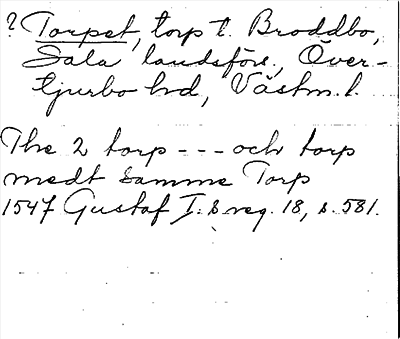 ? Torpet, torp t. Broddbo,
Sala landsförs., Över-
tjurbo hd, Västm. l.
The 2 torp --- och torp
medt samme Torp
1547 Gustaf I:s reg. 18, s. 581.